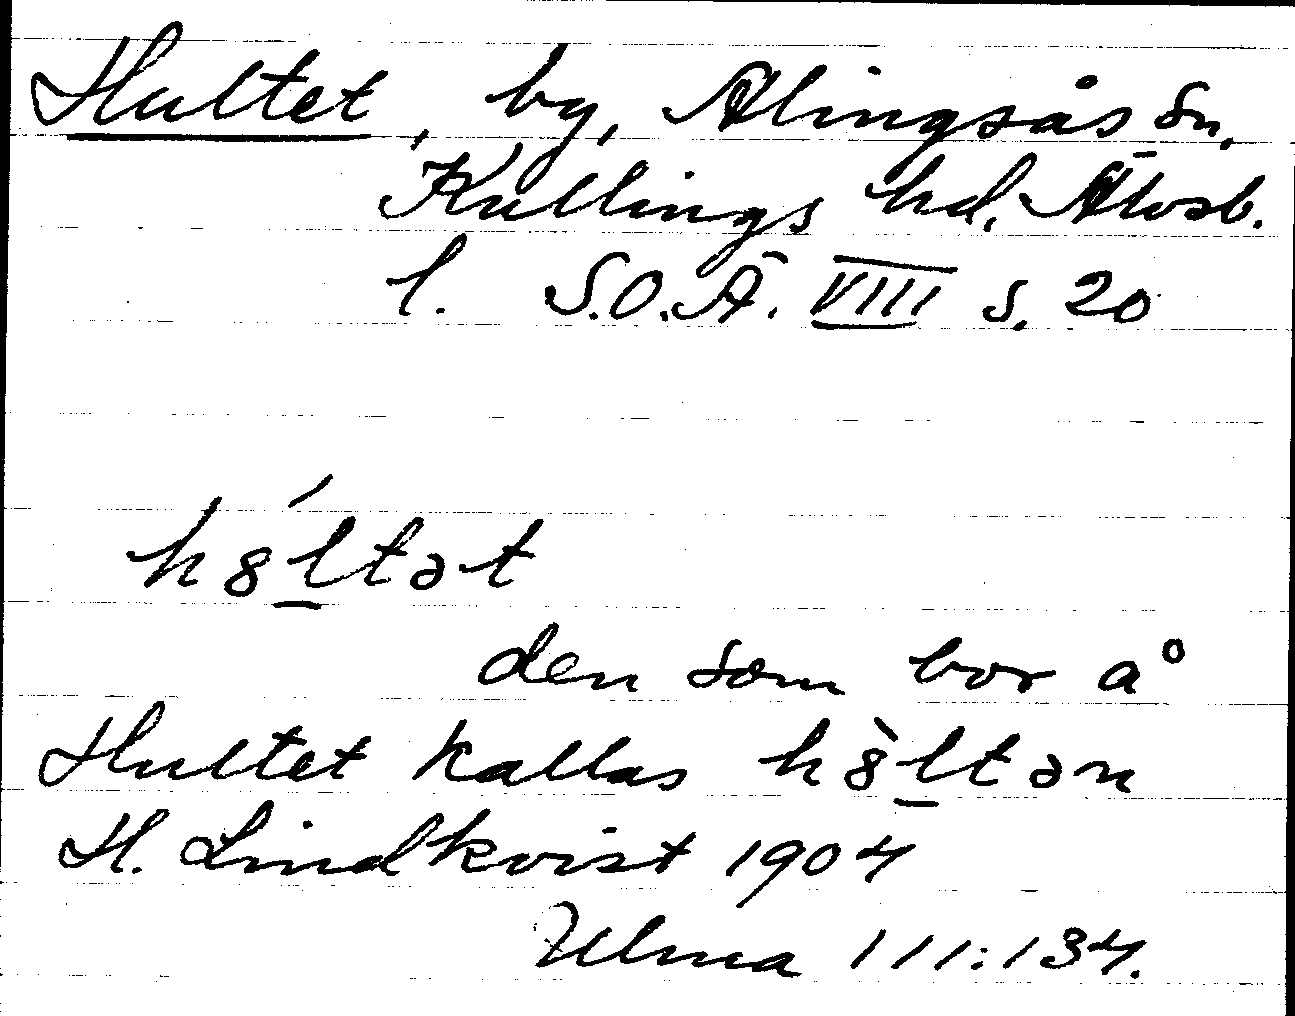 Hultet, by, Alingsås sn,
Kullings hd, Älvsb.
l. S.O.Ä. VIII s. 20
h8́l̲tət
den som bor å
Hultet kallas h8̀l̲tən
H. Lindkvist 1904
Ulma 111:134.